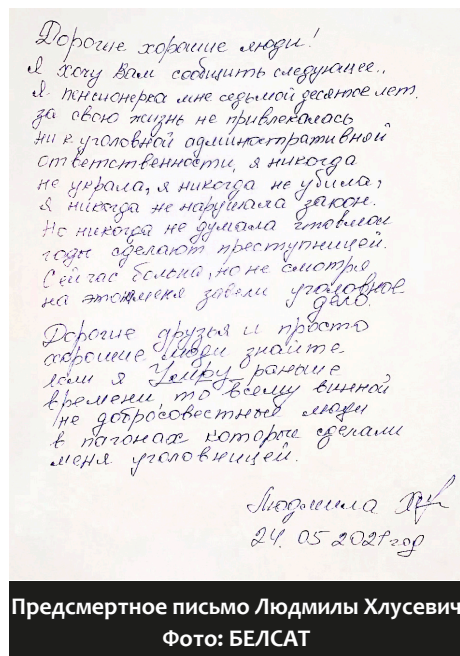 Дорогие хорошие люди!
Я хочу Вам сообщить следующее..
Я пенсионерка мне седьмой десяток лет.
за свою жизнь не привлекалась
ни к уголовной административной
ответственности, я никогда
не украла, я никогда не убила,
я никогда не нарушала закон.
Но никогда не думала что в мои
годы сделают преступницей.
Сейчас больна, но не смотря
на это меня завели уголовное
дело.
Дорогие друзья и просто
хорошие люди знайте
если я Умру раньше
времени, то всему винной
не добросовестные люди
в пагонах которые сделали
меня уголовницей.
Людмила
24. 05 2021 год
Предсмертное письмо Людмилы Хлусевич
Фото: БЕЛСАТ